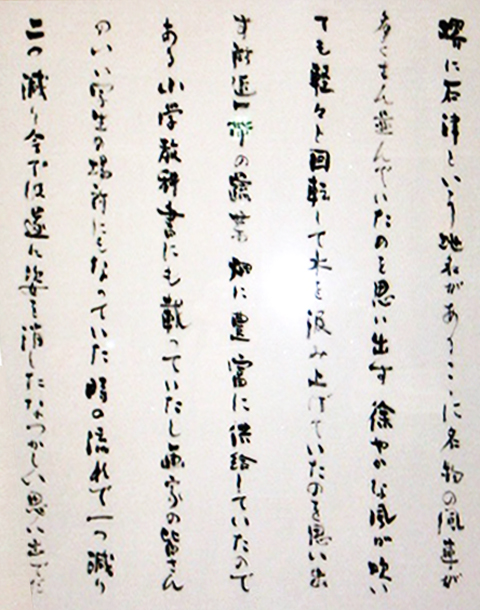 堺に石津という地名があるここに名物の風車が
たくさん並んでいたのを思い出す 徐やかな風が吹い
ても軽々と回転して水を汲み上げていたのを思い出
す 附近一帯の 畑に豊富に供給していたので
ある 小学教科書にも載っていたし画家の皆さん
のいい写生の場所にもなっていた 時の流れで一つ減り
二つ減り今では遂に姿を消したなつかしい思い出だ